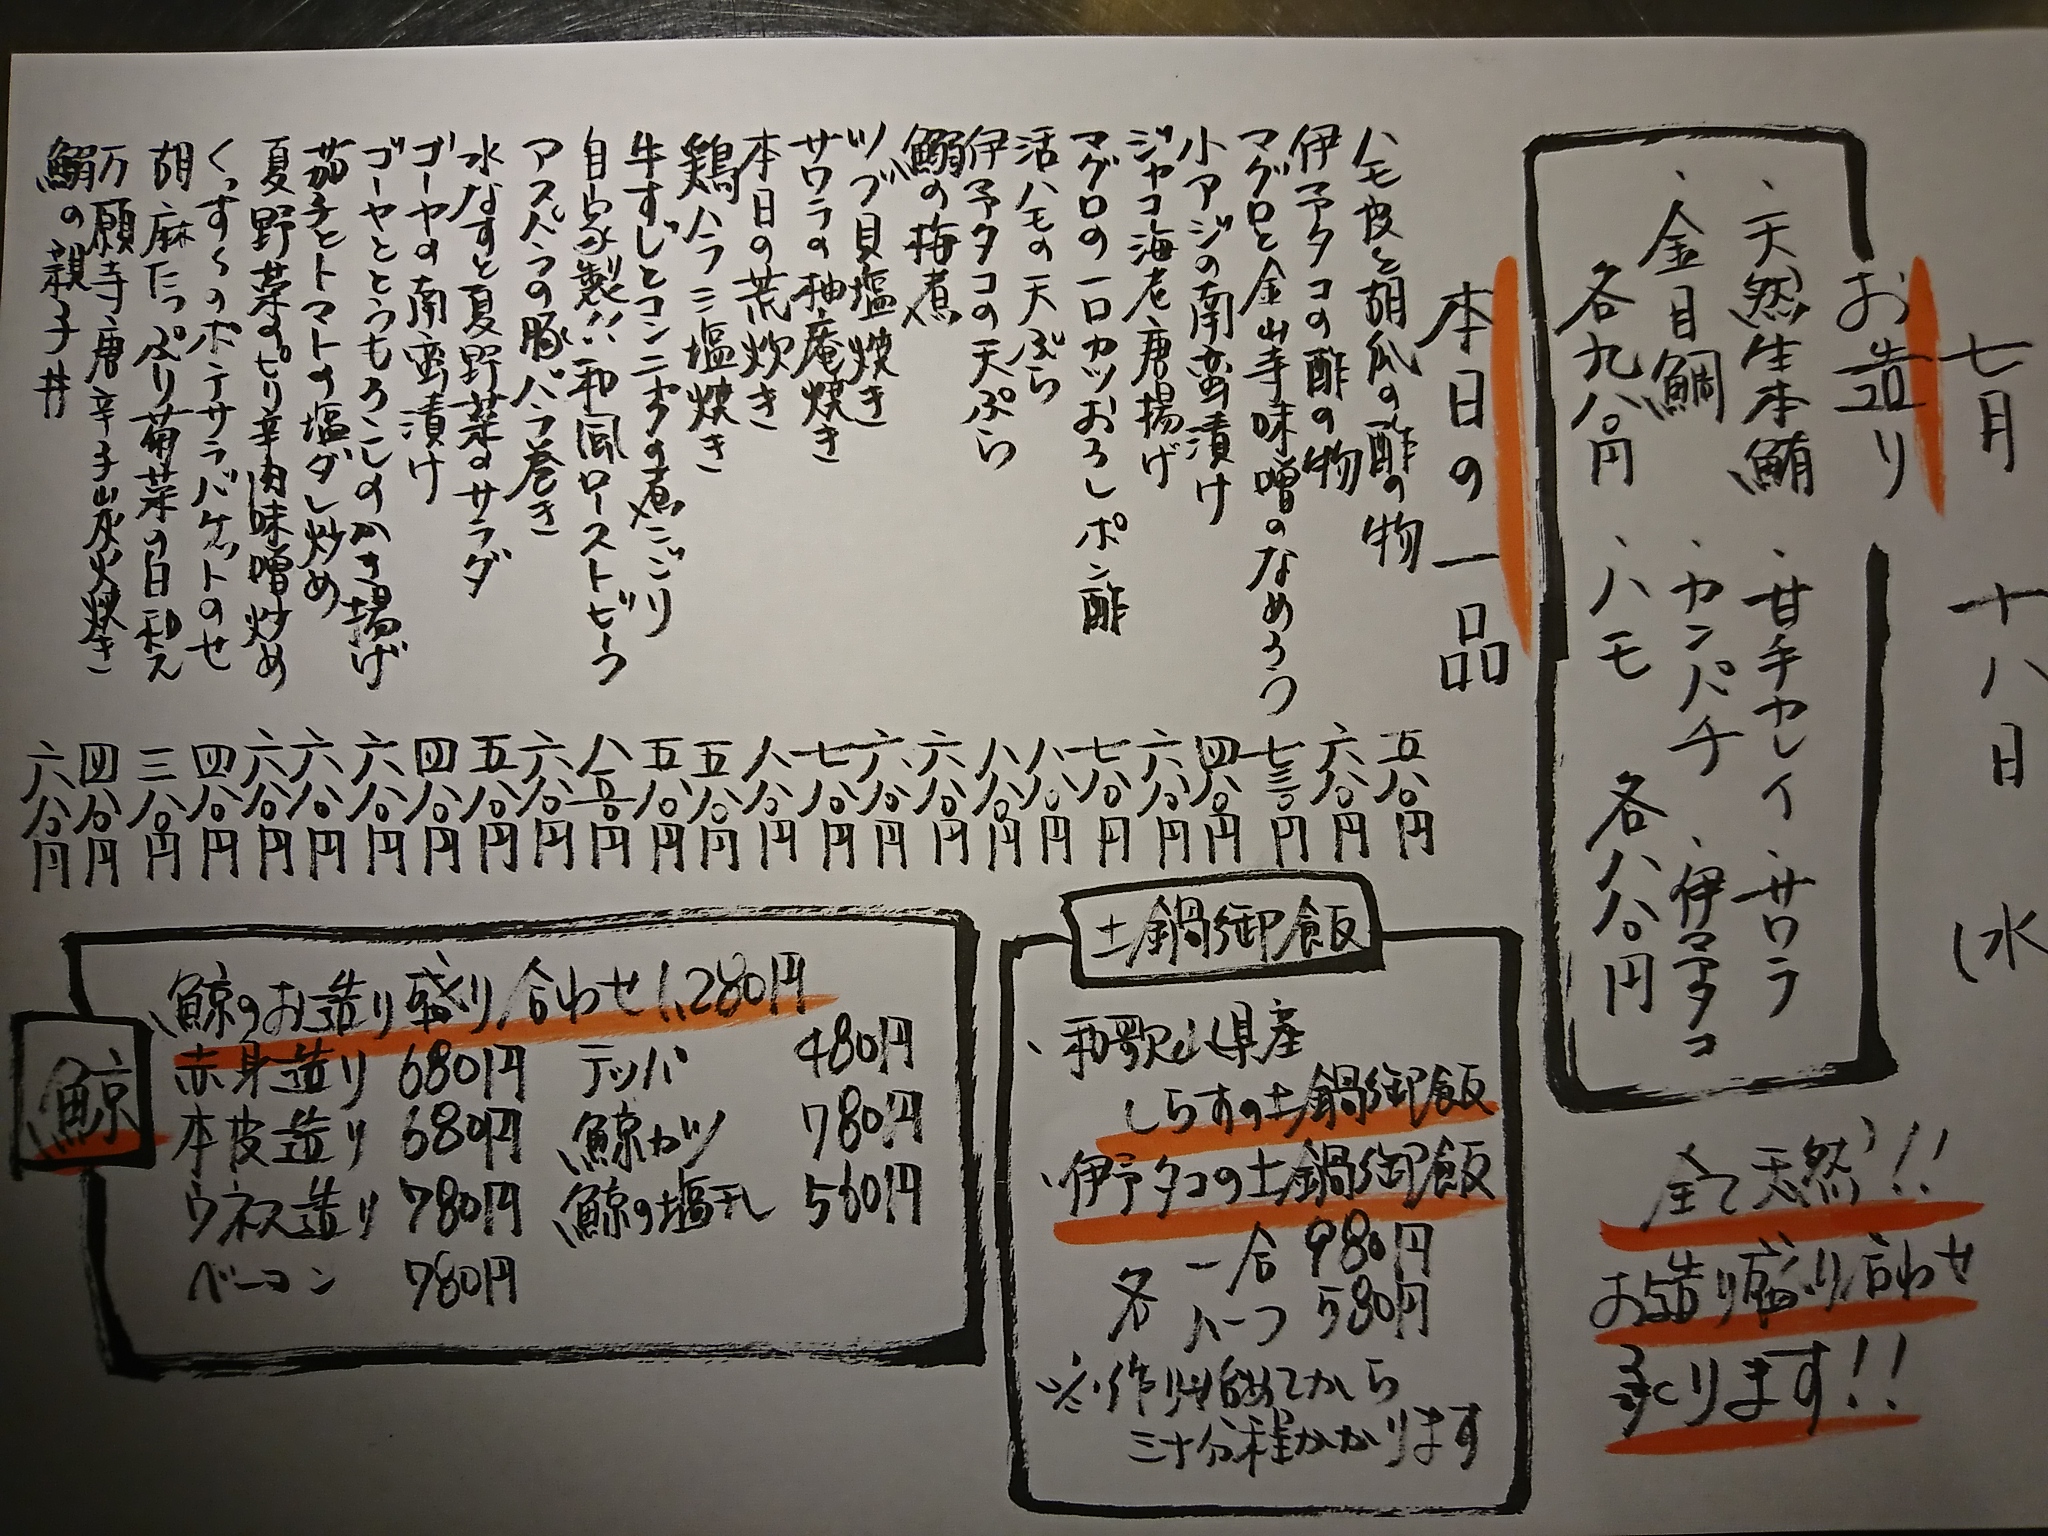 七月 十八日 (水
お造り
・天然生本鮪 ・甘手カレイ ・サワラ
・金目鯛 ・カンパチ ・伊予タコ
各九八〇円 ・ハモ 各八八〇円
全て天然!!
お造り盛り合わせ
承ります!!
本日の一品
ハモ皮と胡瓜の酢の物 五八〇円
伊予タコの酢の物 六八〇円
マグロと金山寺味噌のなめろう 七三〇円
小アジの南蛮漬け 四八〇円
ジャコ海老唐揚げ 六八〇円
マグロの一口カツおろしポン酢 七八〇円
活ハモの天ぷら 八八〇円
伊予タコの天ぷら 八八〇円
鰯の梅煮 六八〇円
ツブ貝塩焼き 六八〇円
サワラの柚庵焼き 七八〇円
本日の荒炊き 八八〇円
鶏ハラミ塩焼き 五八〇円
牛すじとコンニャクの煮こごり 五八〇円
自家製!!和風ローストビーフ 八五〇円
アスパラの豚バラ巻き 六八〇円
水なすと夏野菜のサラダ 五八〇円
ゴーヤの南蛮漬け 四八〇円
ゴーヤととうもろこしのかき揚げ 六八〇円
茄子とトマトの塩ダレ炒め 六八〇円
夏野菜のピリ辛肉味噌炒め 六八〇円
くっすんのポテサラバケットのせ 四八〇円
胡麻たっぷり菊菜の白和え 三八〇円
万願寺唐辛子炭火焼き 四八〇円
鰯の親子丼 六八〇円
土鍋御飯
・和歌山県産
しらすの土鍋御飯
・伊予タコの土鍋御飯
各 一合 980円
ハーフ 580円
※作り始めてから
三十分程かかります
鯨
鯨のお造り盛り合わせ 1,280円
赤身造り 680円 テッパ 480円
本皮造り 680円 鯨カツ 780円
ウネス造り 780円 鯨の塩干し 560円
ベーコン 780円